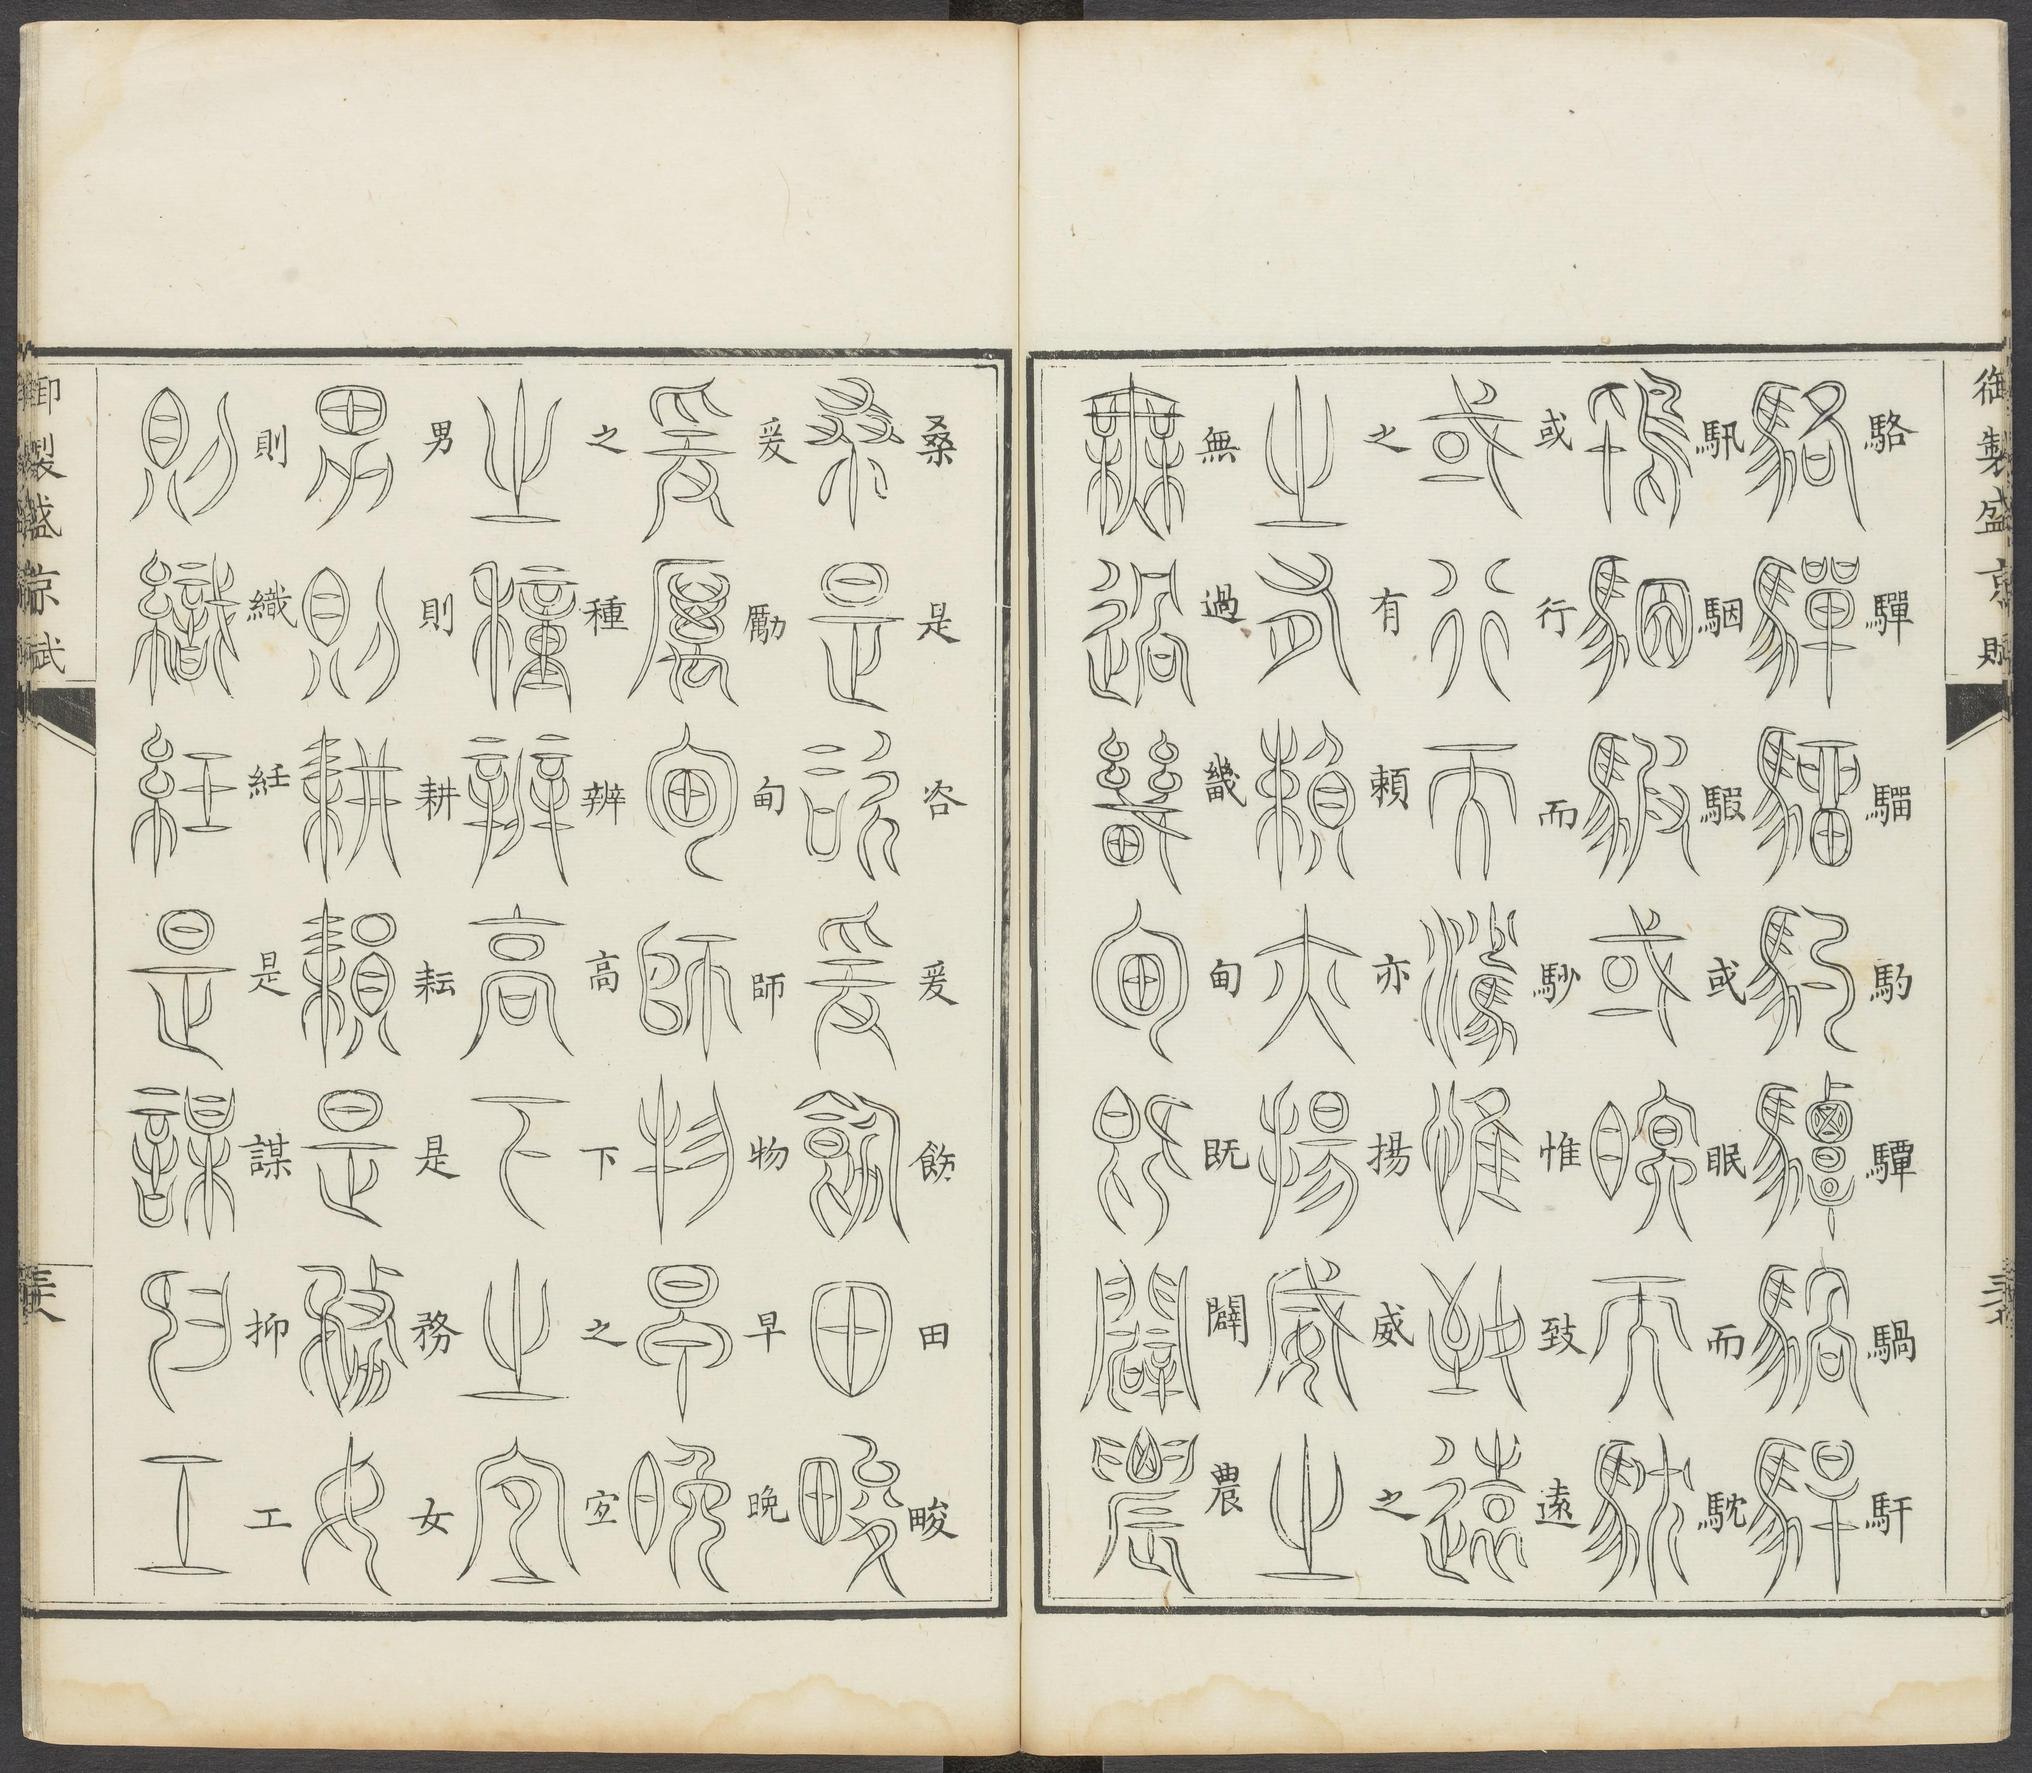 御製盛京賦
駱驒騮馰驔騧馯
馹駰騢或眠而馾
或行而駸惟致遠
之有賴亦揚威之
無過畿甸既闢農
桑是咨爰飭田畯
爰勵甸師物早晚
之種辨高下之宜
男則耕耘是務女
則織紝是謀抑工
御製盛京賦